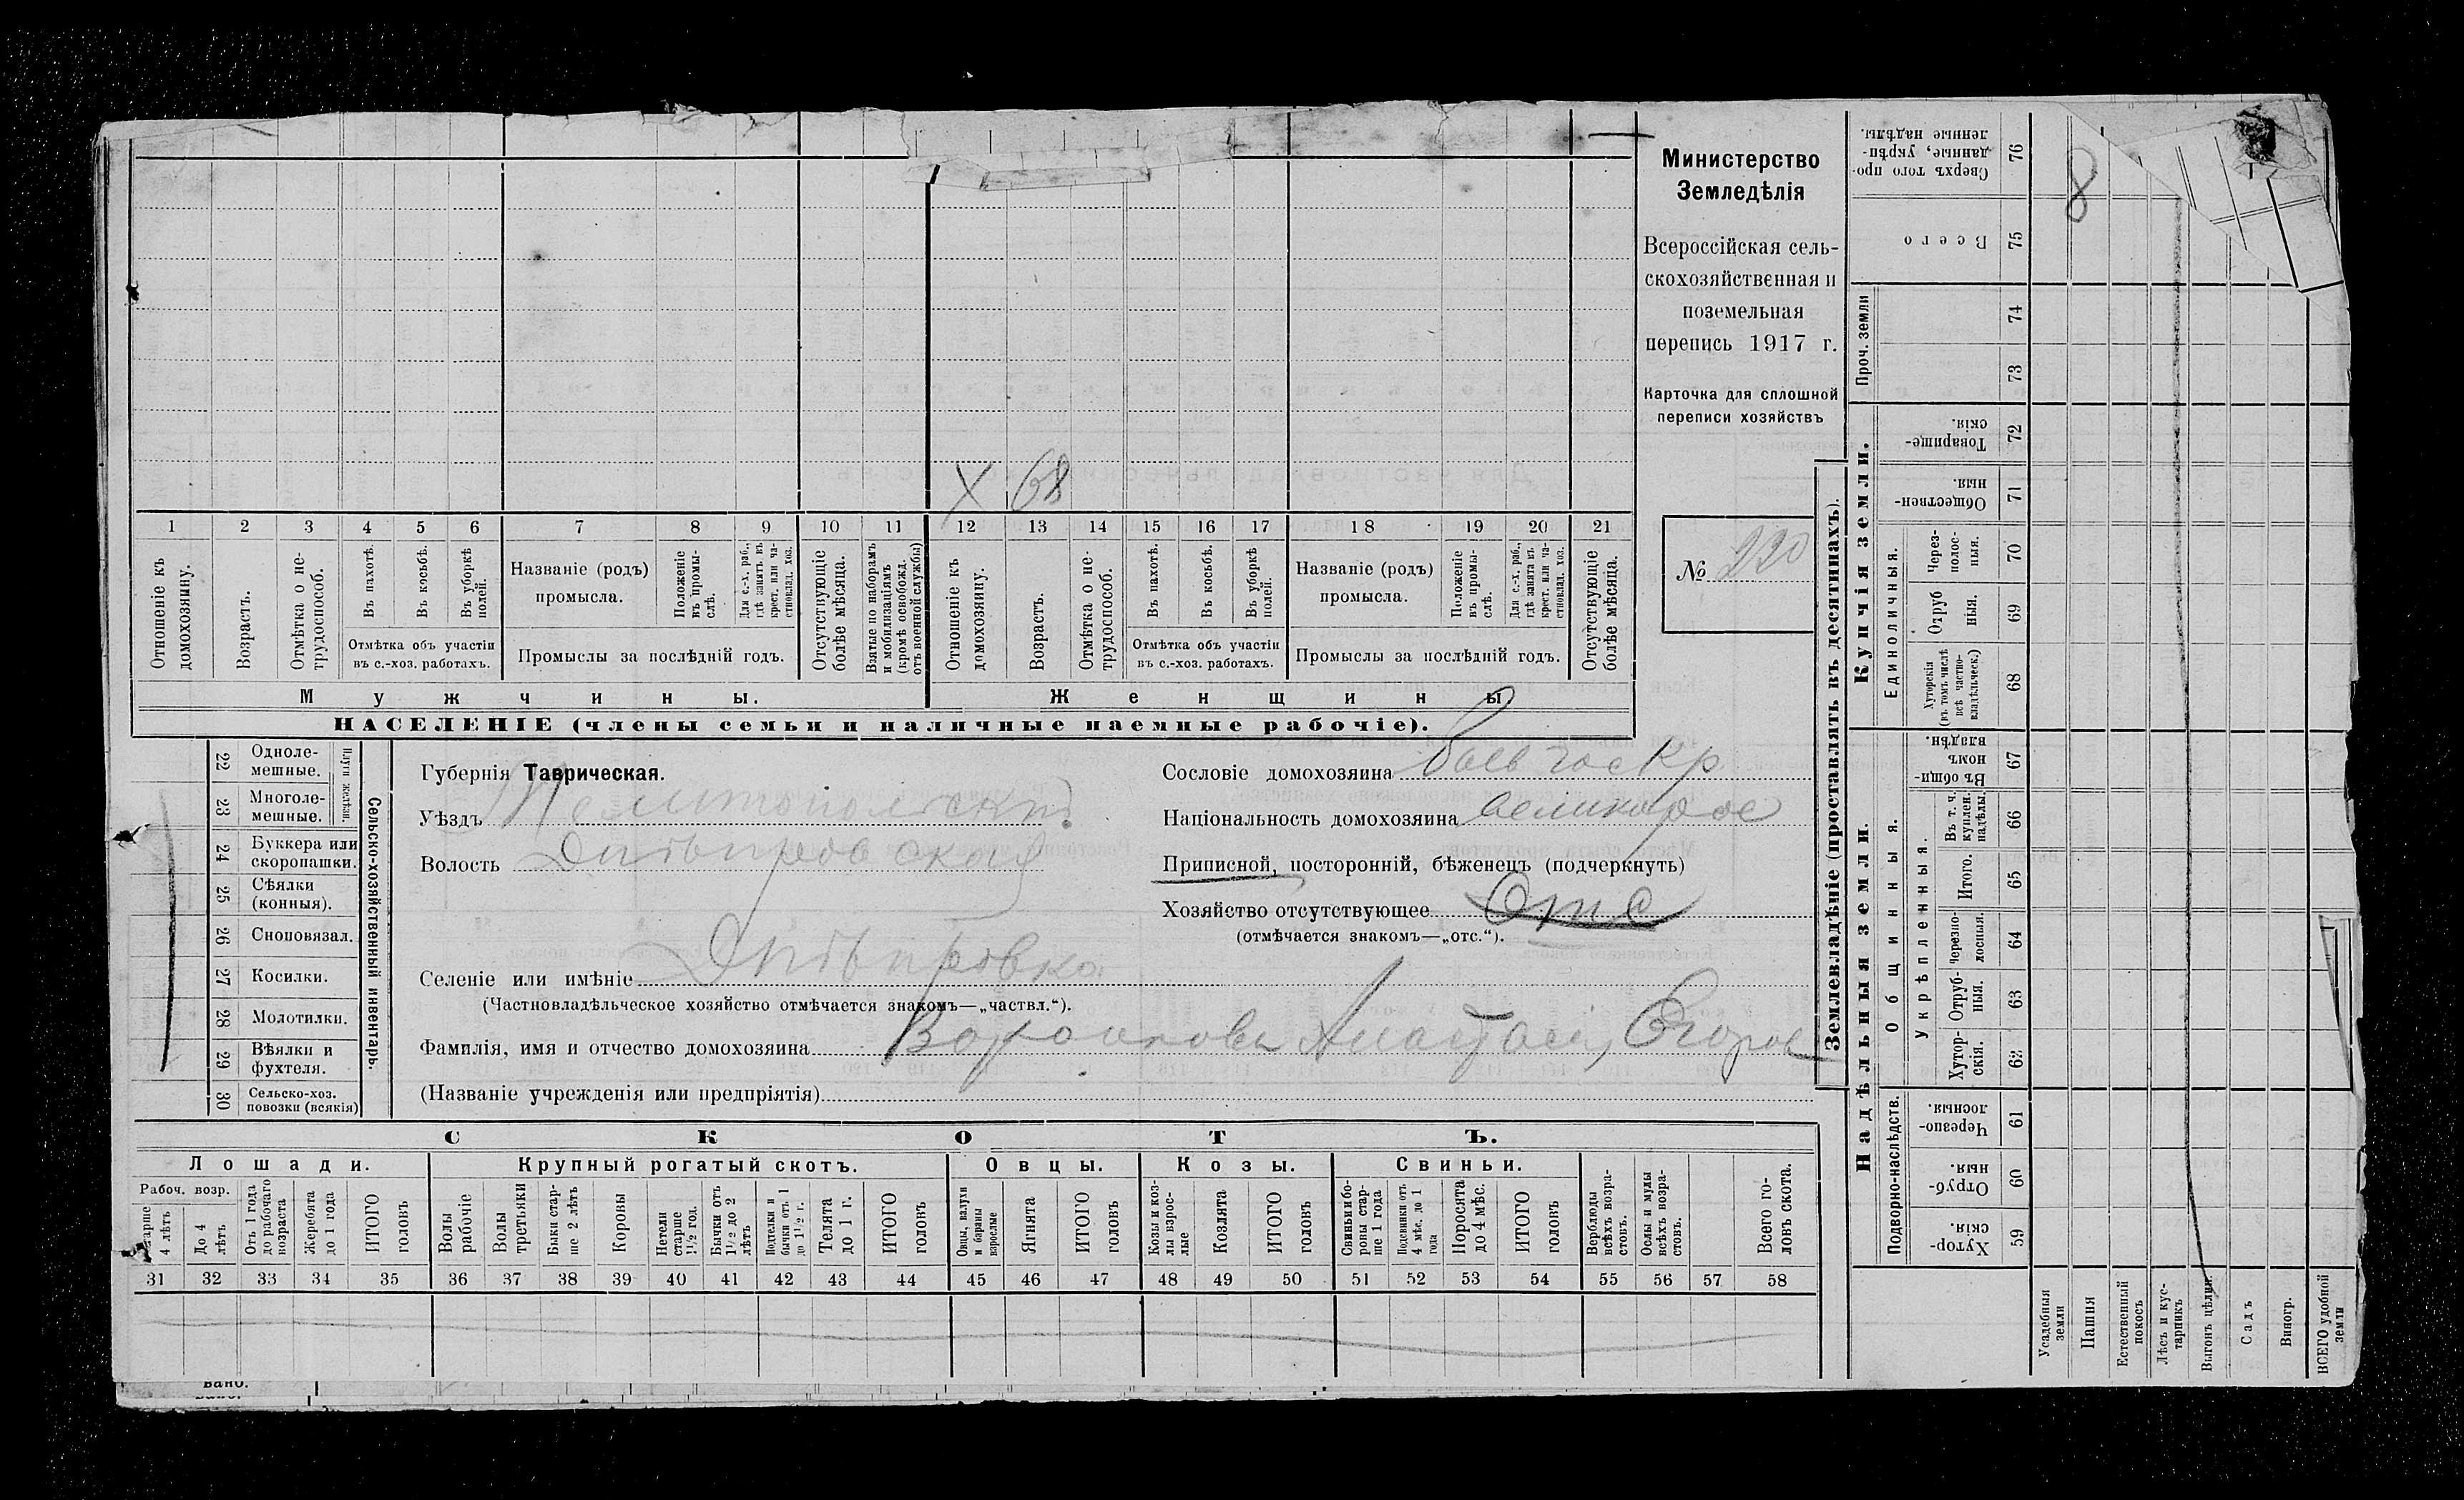 Министерство
Земледѣлія
Всероссійская сель-
скохозяйственная и
поземельная
перепись 1917 г.
Карточка для сплошной
переписи хозяйствъ
№ 220
Х 68
1 2 3 4 5 6 7 8 9 10 11 12 13 14 15 16 17 18 19 20 21
Отношеніе къ домохозяину.
Возрастъ.
Отмѣтка о не-трудоспособ.
Въ пахотѣ.
Въ косьбѣ.
Въ уборкѣ полей.
Отмѣтка объ участіи
въ с.-хоз. работахъ.
Названіе (родъ)
промысла.
Положеніе въ промы-слѣ.
Для с.-х. раб., гдѣ занятъ въ крест. или ча-стновлад. хоз.
Промыслы за послѣдній годъ.
Отсутствующіе болѣе мѣсяца.
Взятые по наборамъ и мобилизаціямъ (кромѣ освобожд. отъ военной службы)
Отношеніе къ домохозяину.
Возрастъ.
Отмѣтка о не-трудоспособ.
Въ пахотѣ.
Въ косьбѣ.
Въ уборкѣ полей.
Отмѣтка объ участіи
въ с.-хоз. работахъ.
Названіе (родъ)
промысла.
Положеніе въ промы-слѣ.
Для с.-х. раб., гдѣ занята въ крест. или ча-стновлад. хоз.
Промыслы за послѣдній годъ.
Отсутствующіе болѣе мѣсяца.
Мужчины.
Женщины
НАСЕЛЕНІЕ (члены семьи и наличные наемные рабочіе).
22 Одноле-мешные.
23 Многоле-мешные.
Плуги желѣзн.
24 Буккера или скоропашки.
25 Сѣялки (конныя).
26 Сноповязал.
27 Косилки.
28 Молотилки.
29 Вѣялки и фухтеля.
30 Сельско-хоз. повозки (всякія)
Сельско-хозяйственный инвентарь.
Губернія Таврическая.
Уѣздъ Мелитопольскій
Волость Днѣпровская
Селеніе или имѣніе Днѣпровка
(Частновладѣльческое хозяйство отмѣчается знакомъ—„частвл.“).
Фамилія, имя и отчество домохозяина Анастасія Егоров
(Названіе учрежденія или предпріятія)
Сословіе домохозяина
Національность домохозяина великорос
Приписной, посторонній, бѣженецъ (подчеркнуть)
Хозяйство отсутствующее Отс
(отмѣчается знакомъ—„отс.“).
СКОТЪ.
Лошади.
Крупный рогатый скотъ.
Овцы.
Козы.
Свиньи.
Рабоч. возр.
Старше 4 лѣтъ
До 4 лѣтъ
Отъ 1 года до рабочаго возраста
Жеребята до 1 года
ИТОГО головъ
Волы рабочіе
Волы третьяки
Быки стар-ше 2 лѣтъ
Коровы
Нетели старше 1½ год.
Бычки отъ 1½ до 2 лѣтъ
Подтелки и бычки отъ 1 до 1½ г.
Телята до 1 г.
ИТОГО головъ
Овцы, валухи и бараны взрослые
Ягнята
ИТОГО головъ
Козы и коз-лы взрос-лые
Козлята
ИТОГО головъ
Свиньи и бо-ровы стар-ше 1 года
Подсвинки отъ 4 мѣс. до 1 года
Поросята до 4 мѣс.
ИТОГО головъ
Верблюды всѣхъ возра-стовъ.
Ослы и мулы всѣхъ возра-стовъ.
Всего го-ловъ скота.
31 32 33 34 35 36 37 38 39 40 41 42 43 44 45 46 47 48 49 50 51 52 53 54 55 56 57 58
вано.
Землевладѣніе (проставлять въ десятинахъ).
8
Сверхъ того про-данные, укрѣп-ленные надѣлы. 76
Всего 75
Проч. земли
74
73
Купчія земли.
Товарище-скія. 72
Обществен-ныя. 71
Единоличныя.
Через-полос-ныя. 70
Отруб ныя. 69
Хуторскія (въ томъ числѣ всѣ частно-владѣльческ.) 68
Надѣльныя земли.
Общинныя.
Въ общин-номъ владѣн. 67
Укрѣпленныя.
Въ т. ч. куплен. надѣлы. 66
Итого. 65
Черезпо-лосныя. 64
Отруб-ныя. 63
Хутор-скія. 62
Подворно-наслѣдств.
Черезпо-лосныя. 61
Отруб-ныя. 60
Хутор-скія. 59
Усадебныя земли
Пашня
Естественный покосъ
Лѣсъ и кус-тарникъ
Выгонъ цѣлин.
Садъ
Виногр.
ВСЕГО удобной земли